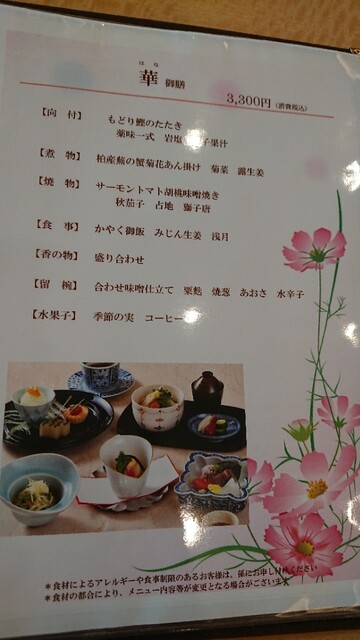 はな
華 御膳
3,300円（消費税込）
【向 付】 もどり鰹のたたき
薬味一式 岩塩 子果汁
【煮 物】 柏産蕪の蟹菊花あん掛け 菊菜 露生姜
【焼 物】 サーモントマト胡桃味噌焼き
秋茄子 占地 獅子唐
【食 事】 かやく御飯 みじん生姜 浅月
【香の物】 盛り合わせ
【留 椀】 合わせ味噌仕立て 栗麩 焼葱 あおさ 水辛子
【水菓子】 季節の実 コーヒー
＊食材によるアレルギーや食事制限のあるお客様は、係にお申し付けください
＊食材の都合により、メニュー内容等が変更となる場合がございます